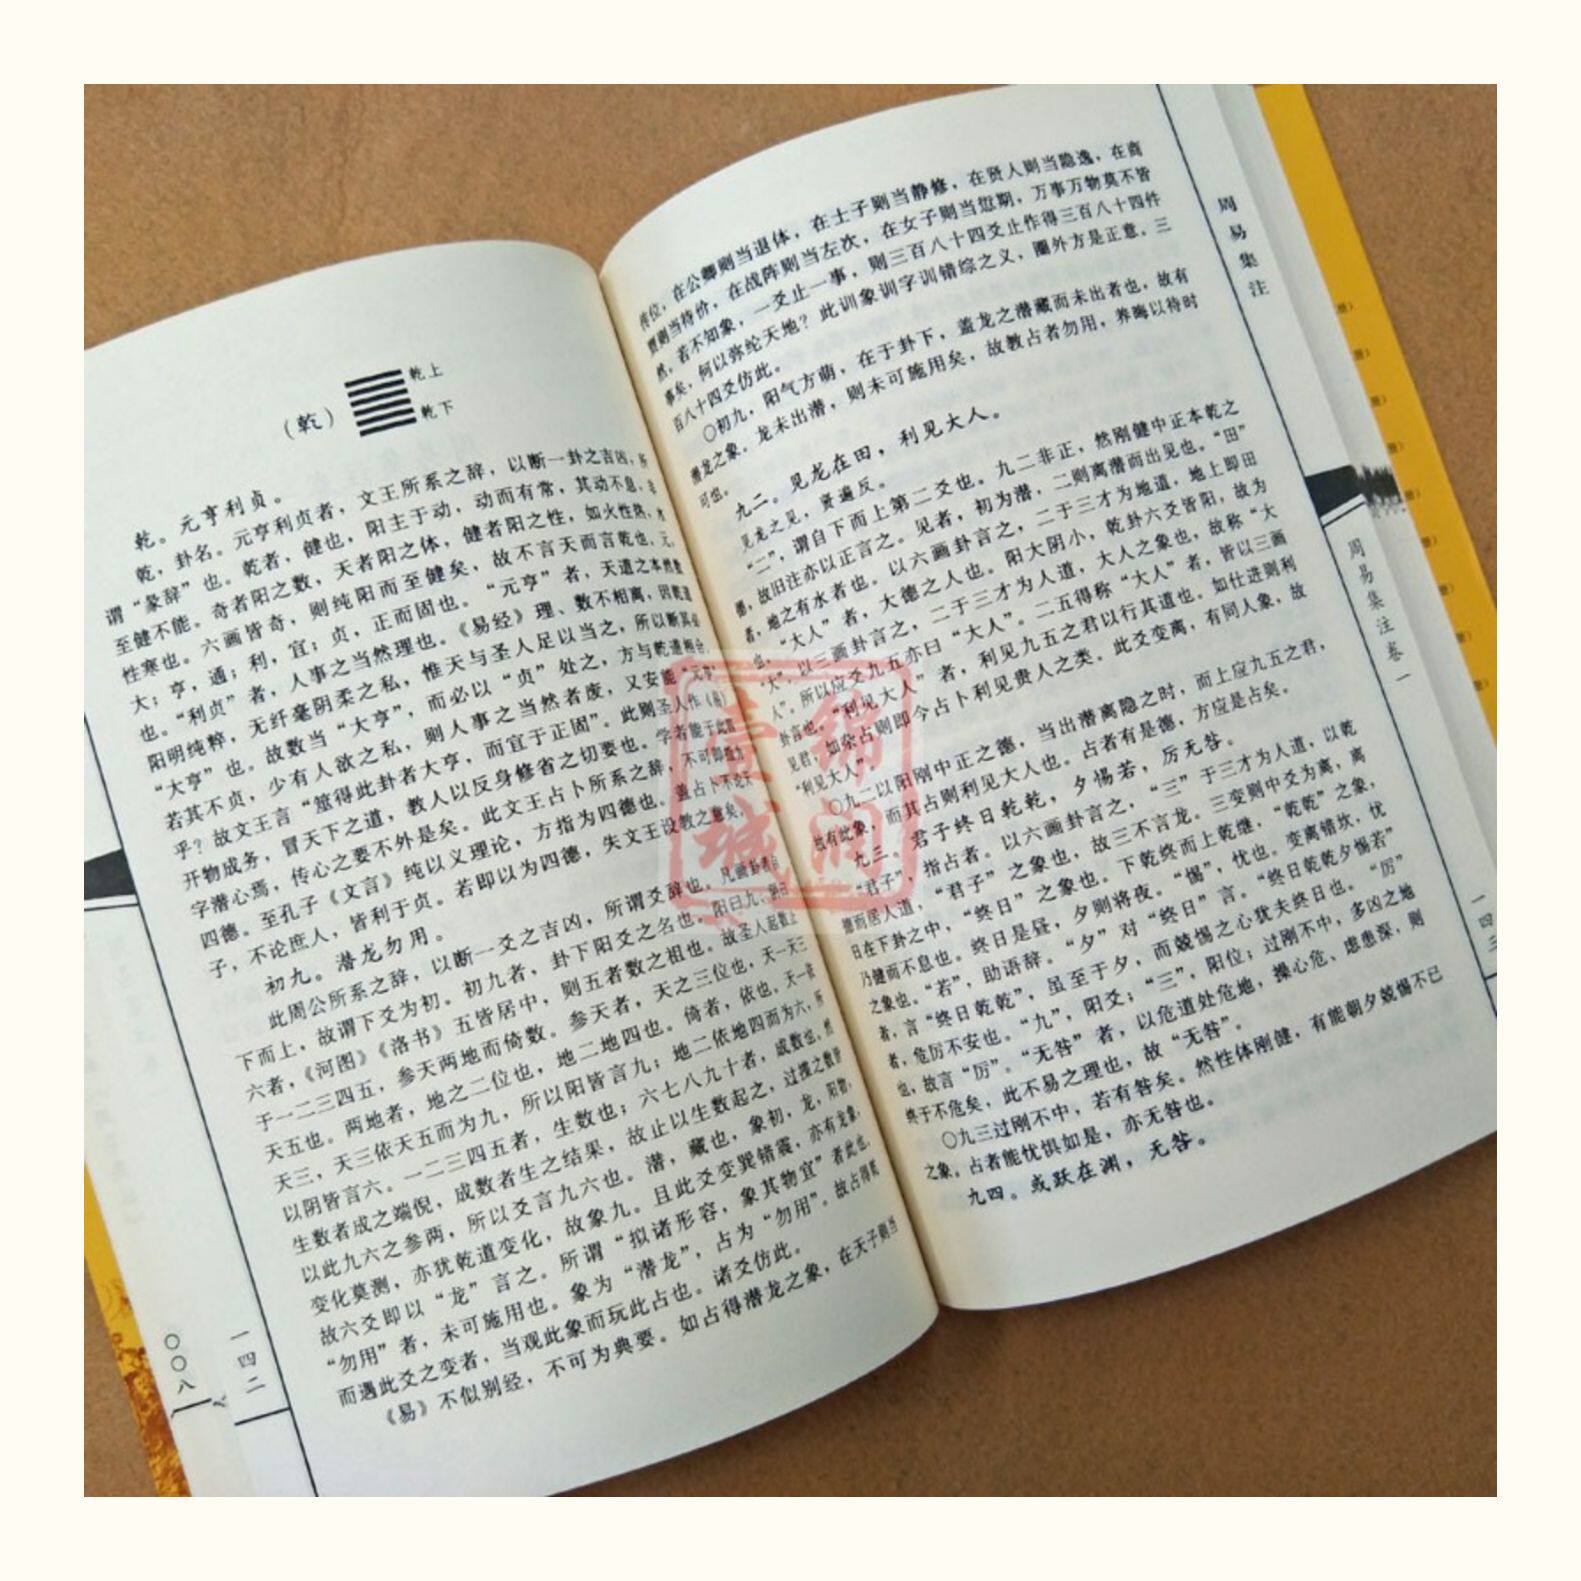 （乾）
乾上
乾下
乾。元亨利贞。
乾，卦名。元亨利贞者，文王所系之辞，以断一卦之吉凶，所
谓“彖辞”也。乾者，健也，阳主于动，动而有常，其动不息，非
至健不能。奇者阳之数，天者阳之体，健者阳之性，如火性热、水
性寒也。六画皆奇，则纯阳而至健矣，故不言天而言乾也。元，
大；亨，通；利，宜；贞，正而固也。“元亨”者，天道之本然数
也。“利贞”者，人事之当然理也。《易经》理、数不相离，因乾道
阳明纯粹，无纤毫阴柔之私，惟天与圣人足以当之，所以断其必
“大亨”也。故数当“大亨”，而必以“贞”处之，方与乾道相合。
若其不贞，少有人欲之私，则人事之当然者废，又安能“元亨”
乎？故文王言“筮得此卦者大亨，而宜于正固”。此则圣人作《易》
开物成务，冒天下之道，教人以反身修省之切要也。学者能于此言
字潜心焉，传心之要不外是矣。此文王占卜所系之辞，不可即指为
四德。至孔子《文言》纯以义理论，方指为四德也。盖占卜不论天
子，不论庶人，皆利于贞。若即以为四德，失文王设教之意矣。
初九。潜龙勿用。
此周公所系之辞，以断一爻之吉凶，所谓爻辞也。凡画卦者自
下而上，故谓下爻为初。初九者，卦下阳爻之名也。阳曰九，阴曰
六者，《河图》《洛书》五皆居中，则五者数之祖也。故圣人起数止
于一二三四五，参天两地而倚数。参天者，天之三位也，天一天三
天五也。两地者，地之二位也，地二地四也。倚者，依也。天一依
天三，天三依天五而为九，所以阳皆言九；地二依地四而为六，所
以阴皆言六。一二三四五者，生数也；六七八九十者，成数也。然
生数者成之端倪，成数者生之结果，故止以生数起之，过揲之数皆
以此九六之参两，所以爻言九六也。潜，藏也，象初。龙，阳物，
变化莫测，亦犹乾道变化，故象九。且此爻变巽错震，亦有龙象，
故六爻即以“龙”言之。所谓“拟诸形容，象其物宜”者此也。
“勿用”者，未可施用也。象为“潜龙”，占为“勿用”。故占得乾
而遇此爻之变者，当观此象而玩此占也。诸爻仿此。
《易》不似别经，不可为典要。如占得潜龙之象，在天子则当
一四二
〇〇八
传位，在公卿则当退休，在士子则当静修，在贤人则当隐逸，在商
贾则当待价，在战阵则当左次，在女子则当愆期，万事万物莫不皆
然。若不知象，一爻止一事，则三百八十四爻止作得三百八十四件
事矣，何以弥纶天地？此训象训字训错综之义，圈外方是正意。三
百八十四爻仿此。
〇初九，阳气方萌，在于卦下，盖龙之潜藏而未出者也，故有
潜龙之象。龙未出潜，则未可施用矣，故教占者勿用，养晦以待时
可也。
九二。见龙在田，利见大人。
见龙之见，贤遍反。
“二”，谓自下而上第二爻也。九二非正，然刚健中正本乾之
德，故旧注亦以正言之。见者，初为潜，二则离潜而出见也。“田”
者，地之有水者也。以六画卦言之，二于三才为地道，地上即田
也。“大人”者，大德之人也。阳大阴小，乾卦六爻皆阳，故为
“大”。以三画卦言之，二于三才为人道，大人之象也，故称“大
人”。所以应爻九五亦曰“大人”。二五得称“大人”者，皆以三画
卦言也。“利见大人”者，利见九五之君以行其道也。如仕进则利
见君，如杂占则即今占卜利见贵人之类。此爻变离，有同人象，故
“利见大人”。
〇九二以阳刚中正之德，当出潜离隐之时，而上应九五之君，
故有此象，而其占则利见大人也。占者有是德，方应是占矣。
九三。君子终日乾乾，夕惕若，厉无咎。
“君子”，指占者。以六画卦言之，“三”于三才为人道，以乾
德而居人道，“君子”之象也，故三不言龙。三变则中爻为离，离
日在下卦之中，“终日”之象也。下乾终而上乾继，“乾乾”之象，
乃健而不息也。终日是昼，夕则将夜。“惕”，忧也。变离错坎，忧
之象也。“若”，助语辞。“夕”对“终日”言。“终日乾乾夕惕若”
者，言“终日乾乾”，虽至于夕，而兢惕之心犹夫终日也。“厉”
者，危厉不安也。“九”，阳爻；“三”，阳位；过刚不中，多凶之地
也，故言“厉”。“无咎”者，以危道处危地，操心危、虑患深，则
终于不危矣，此不易之理也，故“无咎”。
〇九三过刚不中，若有咎矣。然性体刚健，有能朝夕兢惕不已
之象。占者能忧惧如是，亦无咎也。
九四。或跃在渊，无咎。
周易集注
周易集注卷一
一四三